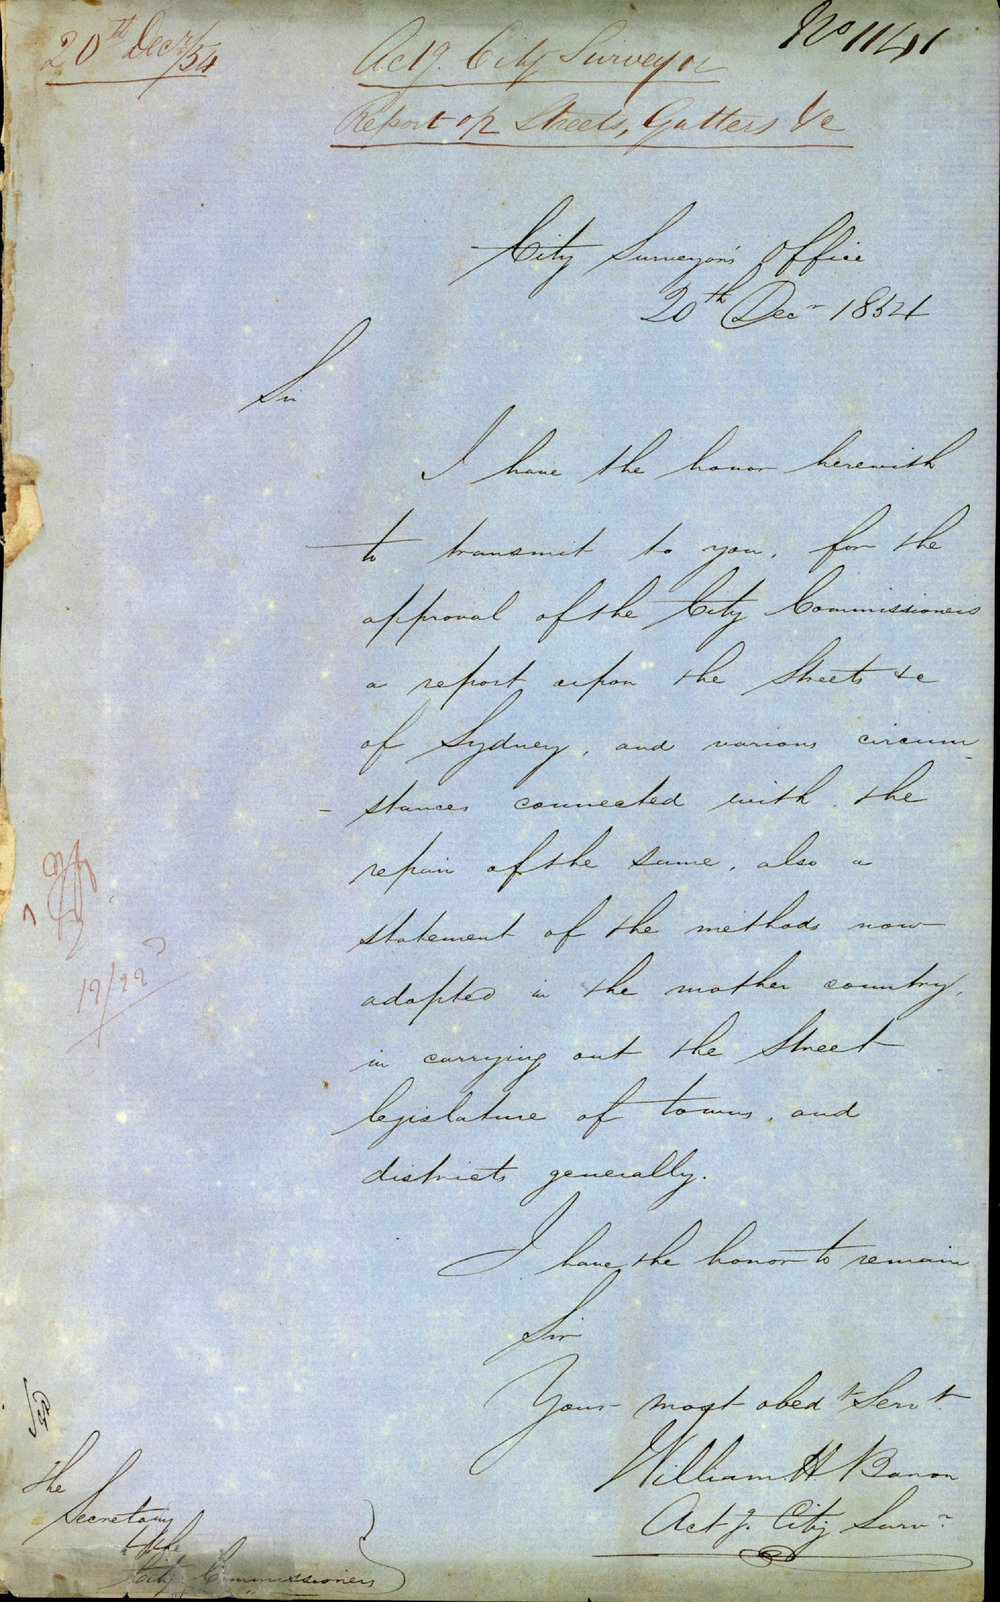 No 1141
20th Decr/54
Actg. City Surveyor
Report op Streets, Gutters &c
City Surveyor's Office
20th Decr 1854
Sir
I have the honor herewith
to transmit to you, for the
approval of the City Commissioners
a report upon the Streets &c
of Sydney, and various circum-
-stances connected with the
repair of the same, also a
statement of the methods now
adopted in the mother country,
in carrying out the Street
legislature of towns, and
districts generally.
I have the honor to remain
Sir
Your most obedt Servt
William H Baron
Actg. City Survr
The
Secretary
to the
City Commissioners